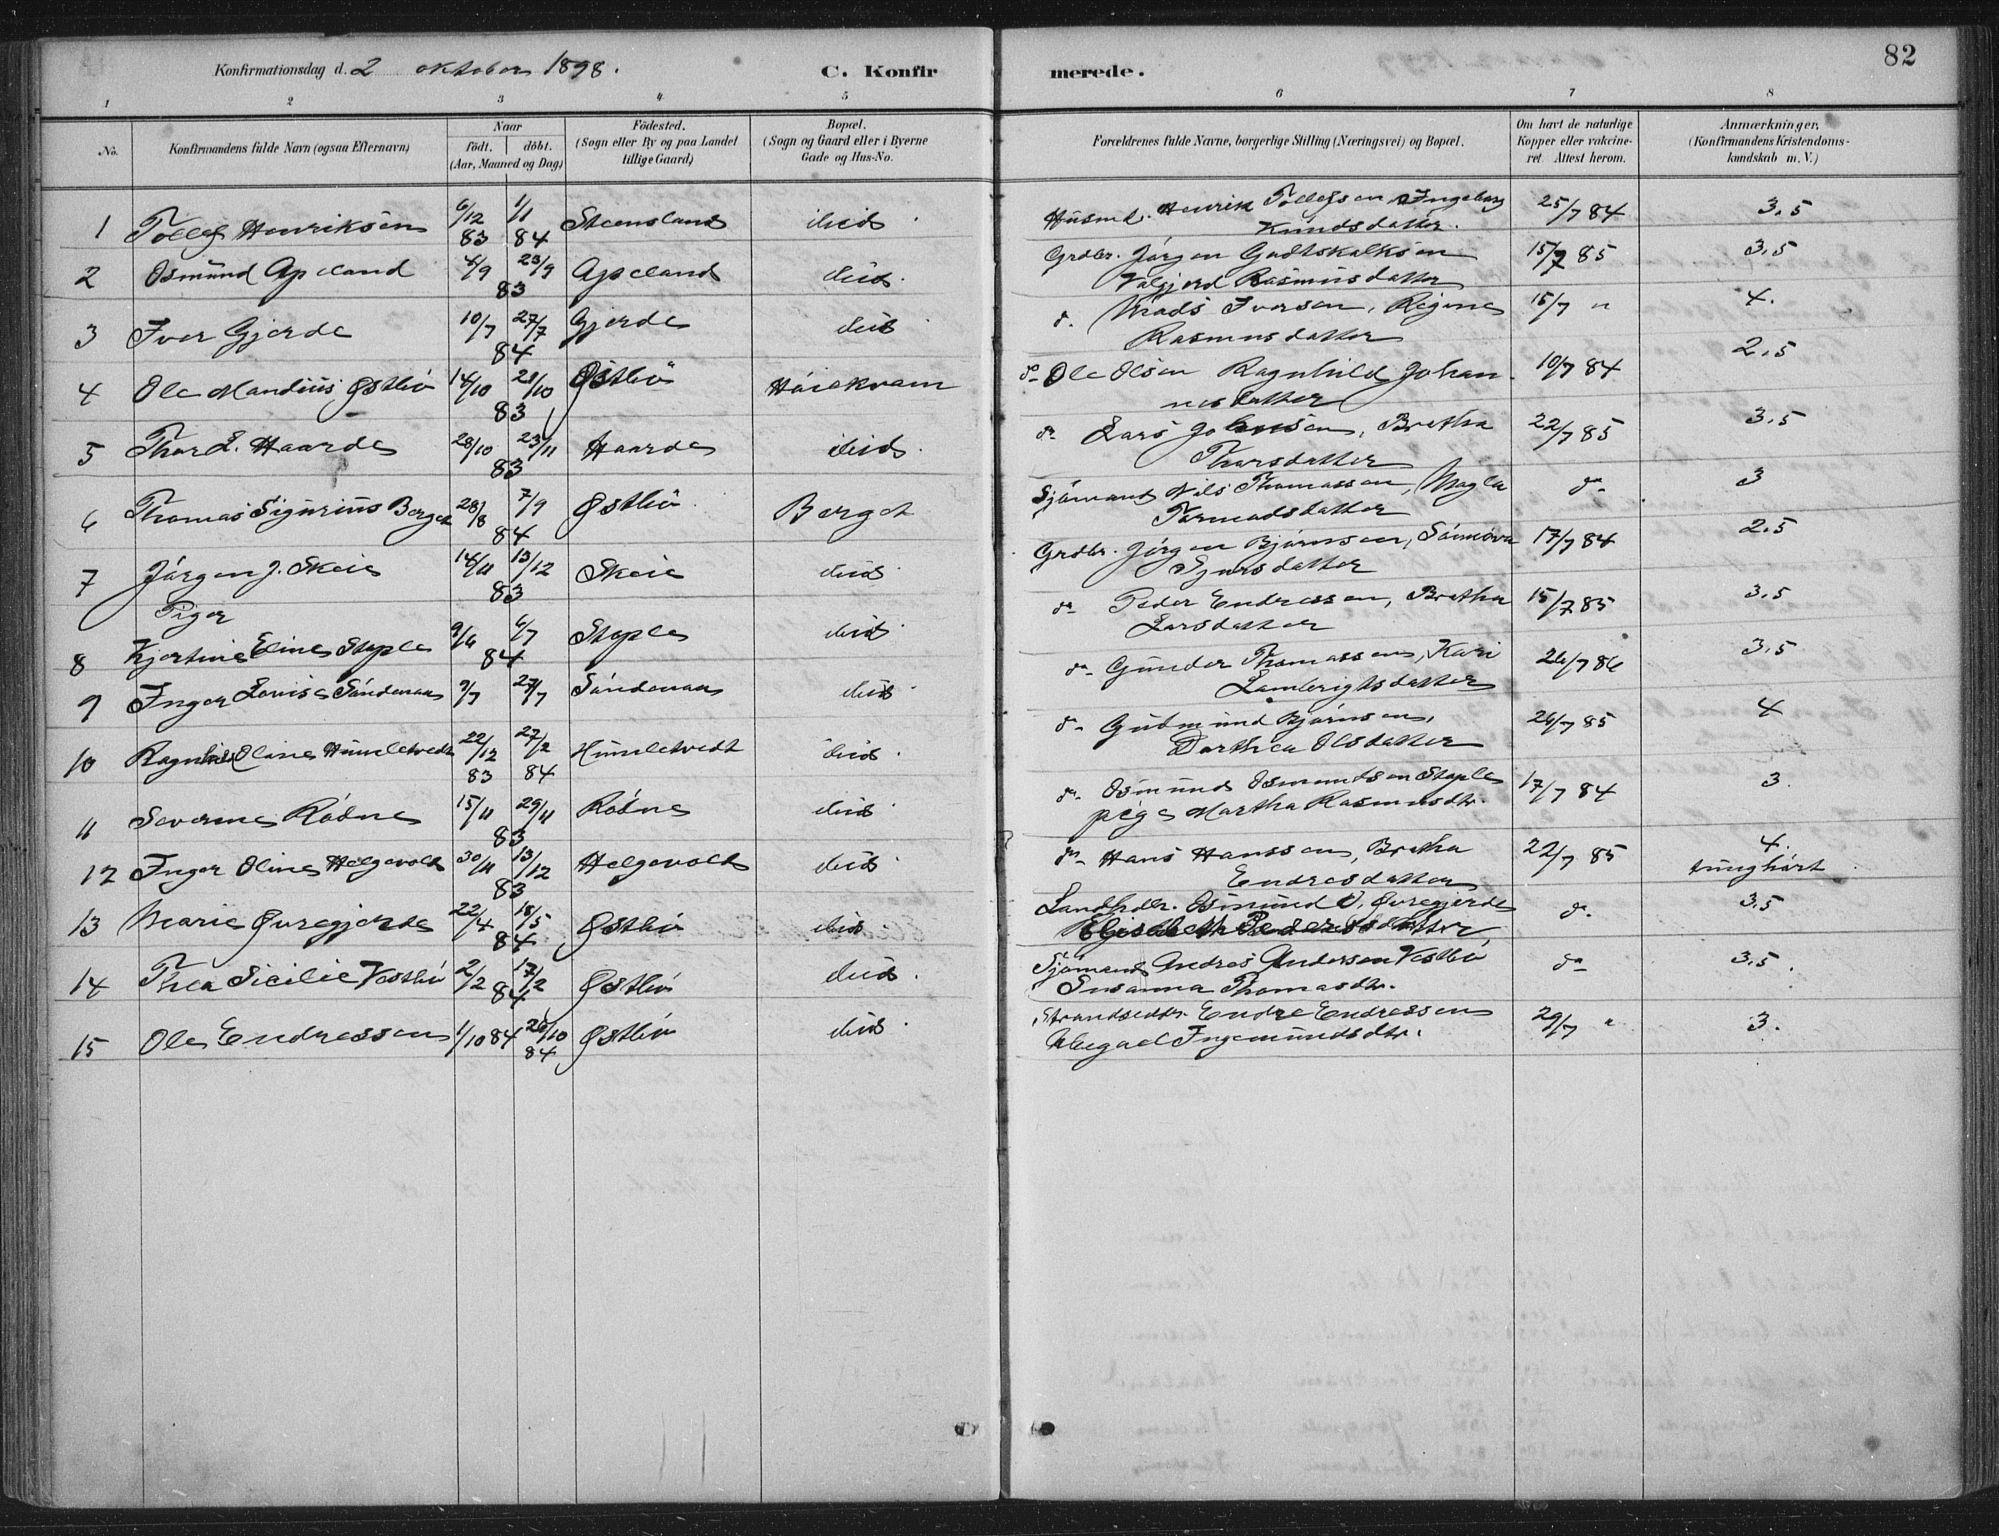 82
Konfirmationsdag d. 2 oktober 1898. C. Konfirmerede.
1 2 3 4 5 6 7 8
No. Konfirmandens fulde Navn (ogsaa Efternavn) Naar født. døbt. (Aar, Maaned og Dag) Fødested. (Sogn eller By og paa Landet tillige Gaard) Bopæl. (Sogn og Gaard eller i Byerne Gade og Hus-No. Forældrenes fulde Navne, borgerlige Stilling (Næringsvei) og Bopæl. Om havt de naturlige Kopper eller vakcineret Attest herom. Anmærkninger. (Konfirmandens Kristendomskundskab m. V.)
1 Tollef Henriksen 6/12 83 1/1 84 Steensland ibid. Husmd. Henrik Tollefsen, Ingeborg Knudsdatter. 25/7 84 3.5
2 Osmund Apeland 4/9 23/9 83 Apeland ibid. Grdbr. Jørgen Godtskalksen Valgjerd Rasmusdatter 15/7 85 3.5
3 Iver Gjerde 10/7 27/7 84 Gjerde ibid d. Mads Iversen, Regine Rasmusdatter 15/7 " 4.
4 Ole Mandius Østbø 14/10 28/10 83 Østbø Høiekvam do Ole Olsen Ragnhild Johannesdatter 10/7 84 2.5
5 Thor L. Haarde 28/10 23/11 83 Haarde ibid. do Lars Johnsen, Bretha Thorsdatter 22/7 85 3.5
6 Thomas Sigurius Berget 28/8 7/9 84 Østbø Berget Sjømand Nils Thomassen, Magla Tormodsdatter do 3
7 Jørgen J. Skeie 14/11 13/12 83 Skeie ibid. Grdbr. Jørgen Bjørnsen, Sønnøva Sjursdatter 17/7 84 2.5
Piger
8 Kjertine Eline Stople 9/6 6/7 84 Stople ibid. do Peder Endressen, Bretha Larsdatter 15/7 85 3.5
9 Inger Lovise Søndenaa 9/7 27/7 Søndenaa ibid. do Gunder Thomassen, Kari Lambrigtsdatter 26/7 86 3.5
10 Ragnhild Oline Humletvedt 22/12 83 27/2 84 Humletvedt ibid. do Gudmund Bjørnsen, Dorthea Olsdatter 26/7 85 4
11 Severine Rødne 15/11 29/11 83 Rødne ibid. do Osmund Osmundsen Stople pige Martha Rasmusdtr. 17/7 84 3.
12 Inger Oline Helgevold 30/11 13/12 83 Helgevold ibid. do Hans Hanssen, Bretha Endresdatter 22/7 85 4. tunghørt
13 Marie Øvregjerde 22/4 18/5 84 Østbø ibid. Landhdlr. Osmund O. Øvregjerde Elisabeth Pedersdatter do. 3.5
14 Thea Sicilie Vestbø 2/2 17/2 84 Østbø ibid. Sjømand Andres Andersen Vestbø Susanna Thomasdtr. do 3.5
15 Ole Endressen 1/10 84 26/10 84 Østbø ibid. Strandsiddr. Endre Endressen Ingemundsdtr. 29/7 " 3.